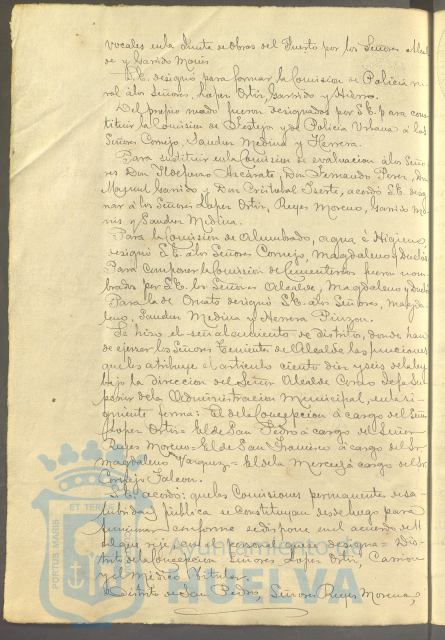 vocales en la Junta de Obras del Puerto por los Señores Alcal
de y Garrido Moris
S.E. designó para formar la Comision de Policía ru
ral á los Señores, Lopez Ortiz Garrido y Hierro.
Del propio modo fueron designados por S.E. para cons
tituir la Comision de Festejos y de Policía Urbana á los
Señores Cornejo, Sanchez Medina y Herrera.
Para sustituir en la Comision de evaluacion á los Seño
res Don Ildefonso Ascárate, Don Fernando Perez, Don
Manuel Garrido y Don Cristobal acordó S.E. desig
nar á los Señores Lopez Ortiz, Reyes Moreno, Garrido Mo
ris y Sanchez Medina.
Para la Comision de Alumbrado, agua é Higiene
designó S.E. á los Señores Cornejo, Magdaleno y
Para componer la Comision de Cementerios fueron nom
brados por S.E. los Señores Alcalde, Magdaleno y
Para la de Ornato designó S.E. á los Señores, Magda
leno, Sanchez Medina y Herrera Pinzon.
Se hizo el señalamiento de distrito, donde han
de ejercer los Señores Teniente de Alcalde las funciones
que les atribuye el articulo ciento diez y seis de la ley
bajo la direccion del Señor Alcalde Como Jefe Su
perior de la Administracion Municipal, en la si
guiente forma: El de la Concepcion á cargo del Señor
Lopez Ortiz = el de San Pedro á cargo del Señor
Reyes Moreno = El de San Francisco á cargo del Sr.
Magdaleno Vazquez = El de la Merced á cargo del Sr.
Cornejo Falcon.
S.E. acordó: que las Comisiones permanentes de sa
lubridad pública se constituyan desde luego para
funcionar conforme se dispone en el acuerdo
que rije, con el personal que designa = Dis
trito de la Concepcion Señores Lopez Ortiz, Carrion
y el Médico Titular.
Distrito de San Pedro, Señores Reyes Moreno,
PORTUS MARIS
ET TERR
Ayuntamiento de
HUELVA